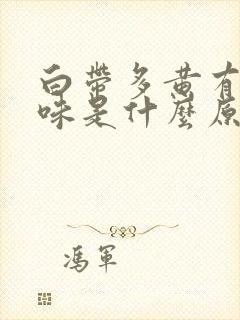 白帶多黄有
味是什麽原
馮軍